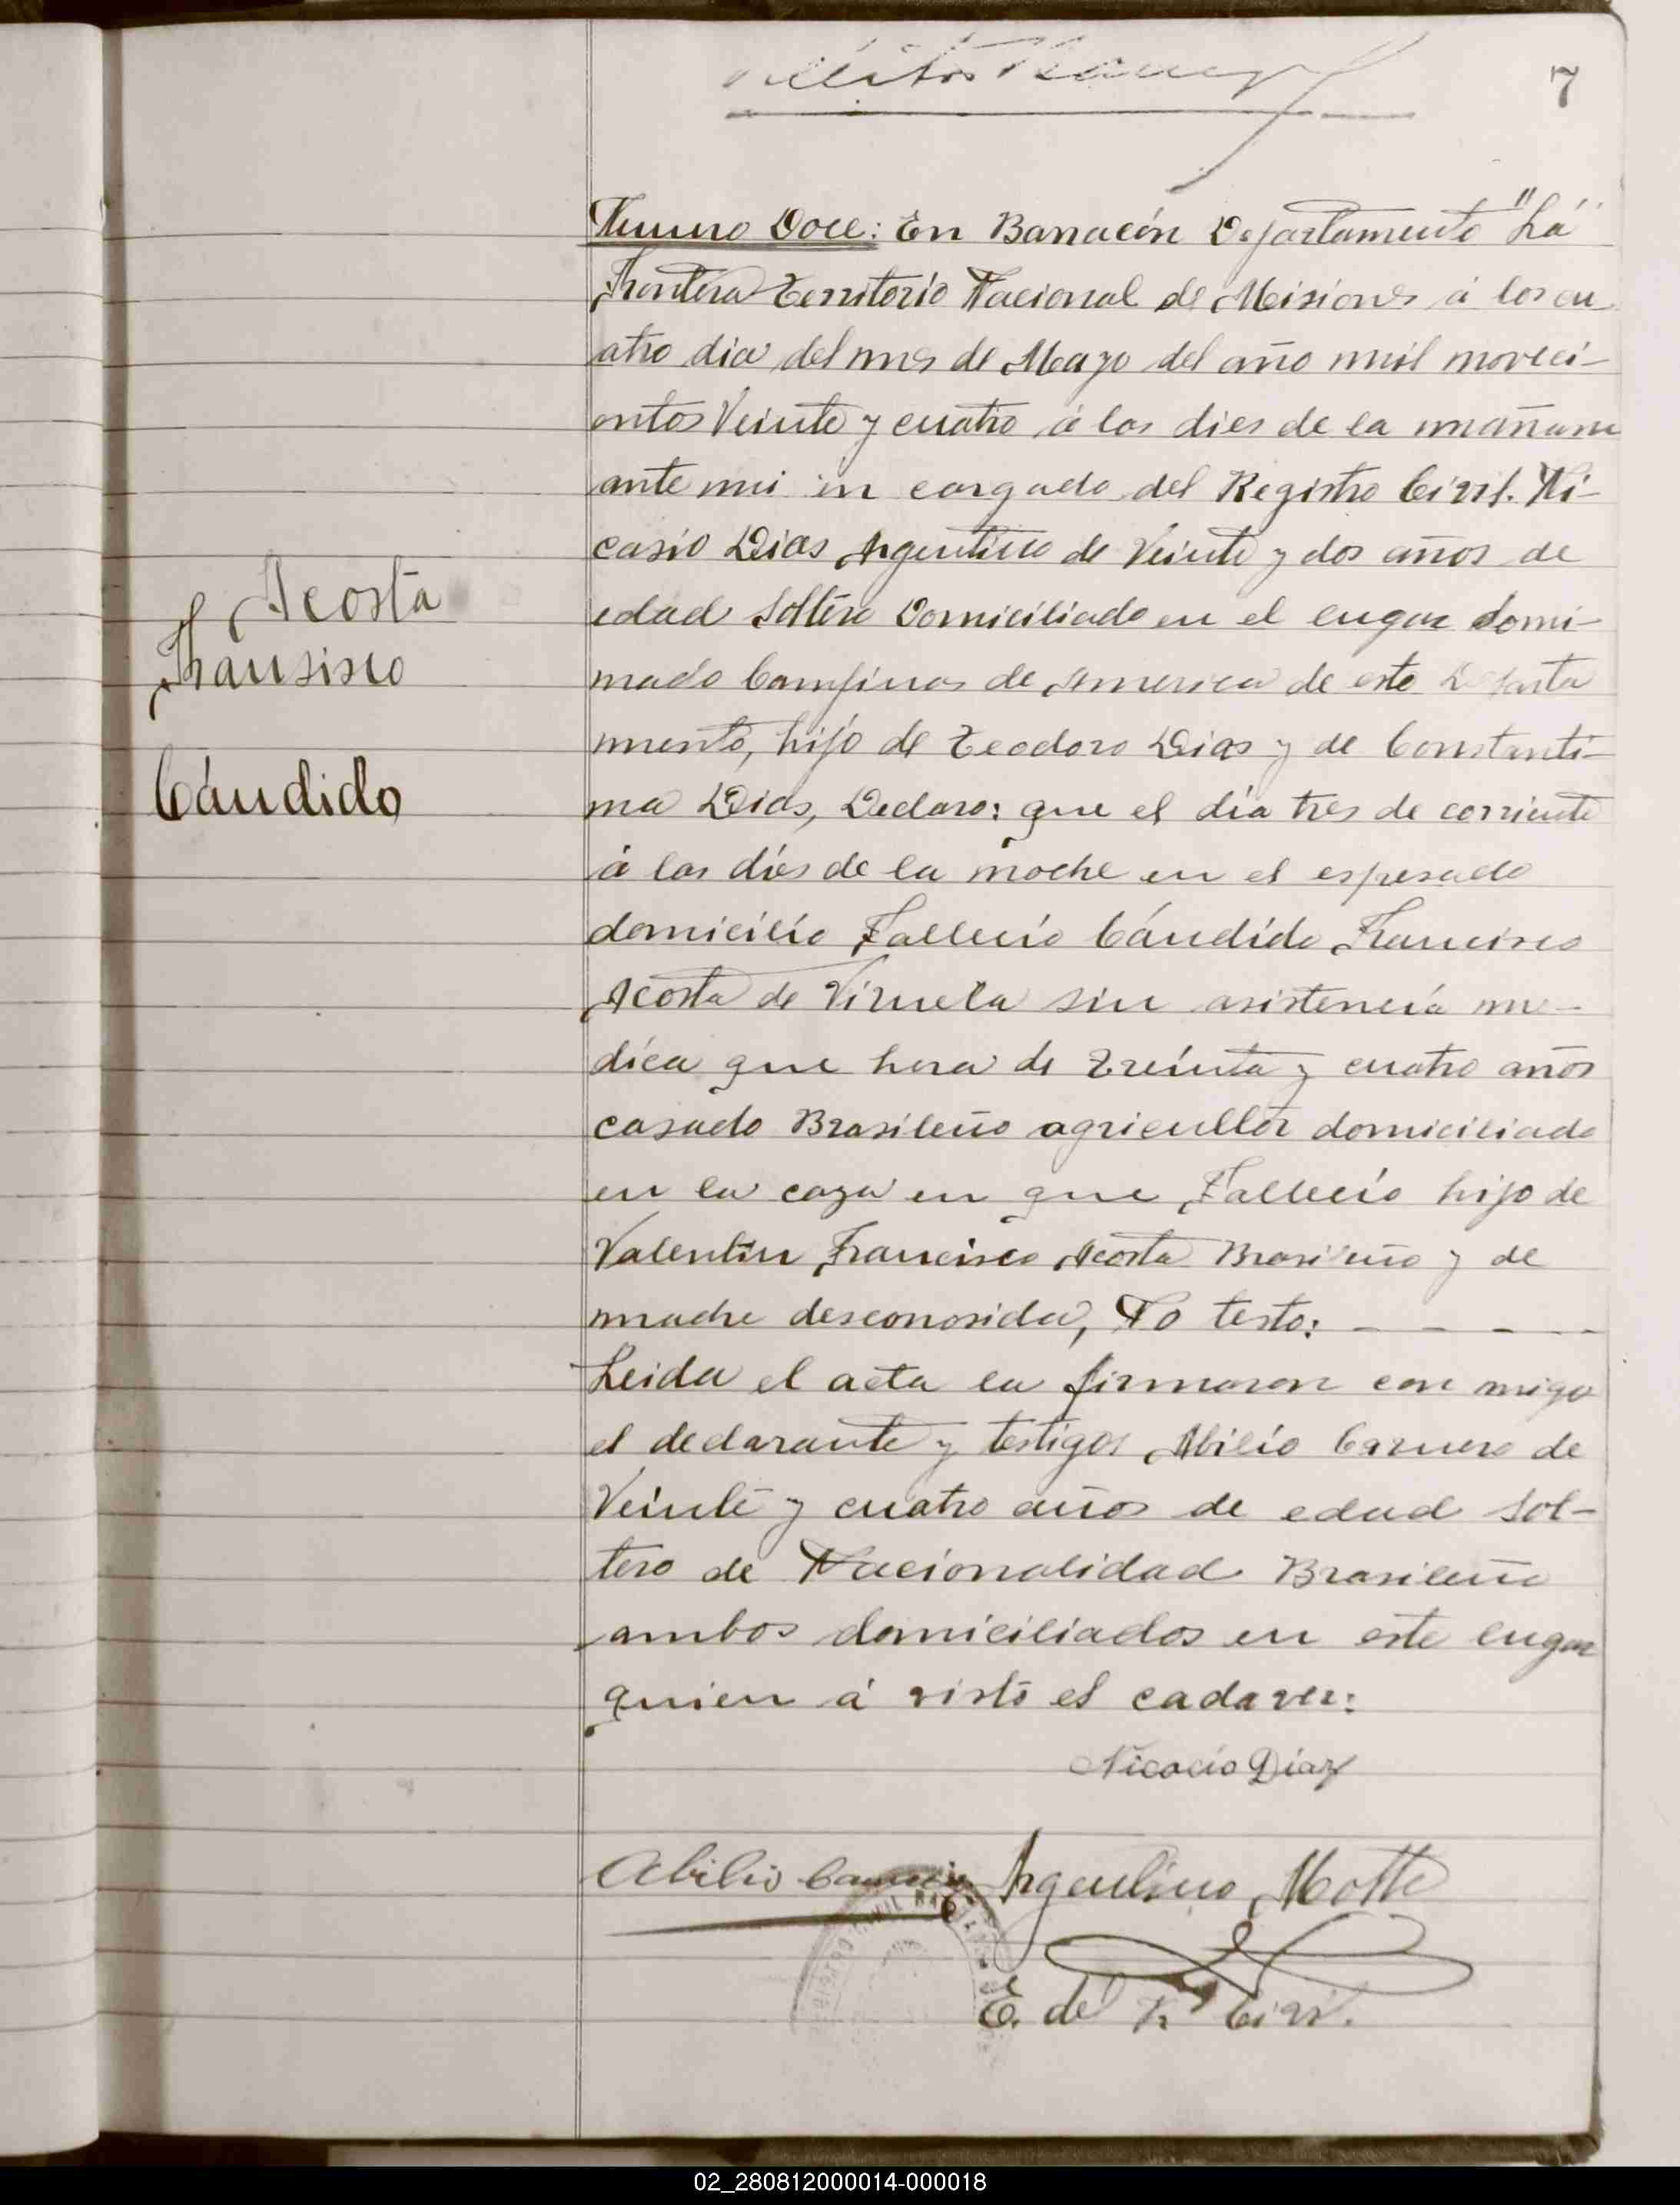 7
Numero Doce: En Barracón Departamento "La
Frontera Territorio Nacional de Misiones á los cu
atro dia del mes de Mayo del año mil noveci-
entos Veinte y cuatro á las dies de la mañana
ante mi in cargado del Registro Civil. Ni-
casio Dias Argentino de Veinte y dos años de
edad Soltero Domiciliado en el lugar domi-
nado Campinas de America de este Departa
mento, hijo de Teodoro Dias y de Constanti-
na Dias, Declaro: que el día tres de corriente
á las díes de la noche en el espresado
domicilio Fallecío Cándido Francisco
Acosta de Viruela sin asistencia me-
dica que hera de Treinta y cuatro años
casado Brasileño agricultor domiciliado
en la caza en que Fallecío hijo de
Valentin Francisco Acosta Brasileño y de
madre desconosida, No testo:
Leida el acta la firmaron con migo
el declarante y testigos Abilio Carnero de
Veinte y cuatro años de edad Sol-
tero de Nacionalidad Brasileño
ambos domiciliados en este lugar
quien á visto el cadaver:
Acosta
Fransisco
Cándido
Nicacio Díaz
Abilio Argentino Motte
E. de R. Civi.
02_280812000014-000018